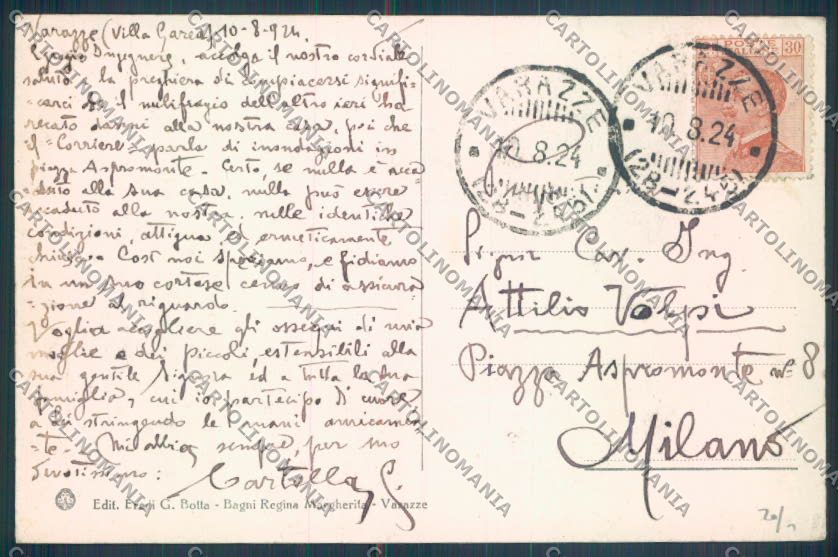 Varazze (Villa Carea) 10-8-924.
Egregio Ingegnere, accolga il nostro cordiale
saluto e la preghiera di compiacersi signifi-
carci se il nubifragio dell'altro ieri ha
recato danni alla nostra casa, poi che
il "Corriere" parla di inondazioni in
piazza Aspromonte. Certo, se nulla è acca
duto alla sua casa, nulla può essere
accaduto alla nostra, nelle identiche
condizioni, attigua ed ermeticamente
chiusa. Così noi speriamo, e fidiamo
in un suo cortese cenno di assicura
-zione al riguardo.
Voglia accogliere gli ossequi di mia
moglie e dei piccoli, estensibili alla
sua gentile Signora ed a tutta la sua
famiglia, cui io partecipo di cuore
a Lei stringendo le mani amicamen
-te. Mi abbia sempre, per suo
devotissimo:
G.
Edit. Eredi G. Botta - Bagni Regina Margherita - Varazze
POSTE ITALIANE 30
VARAZZE
10.8.24
VARAZZE
10.8.24
Signor Cav. Ing.
Attilio Volpi
Piazza Aspromonte n° 8
Milano
CARTOLINOMANIA